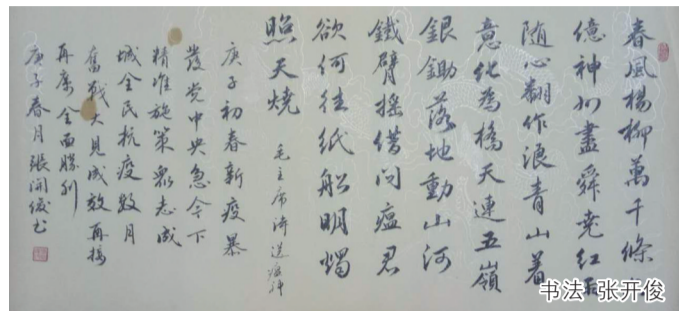 春風楊柳萬千條六
億神州盡舜堯紅雨
随心翻作浪青山着
意化為橋天連五嶺
銀鋤落地動山河
鐵臂摇借问瘟君
欲何往纸船明燭
照天燒
毛主席诗送瘟神
庚子初春新疫暴
發党中央急令下
精准施策眾志成
城全民抗疫数月
奮戰大见成效再接
再厲全面勝利
庚子春月張開俊书
书法·张开俊